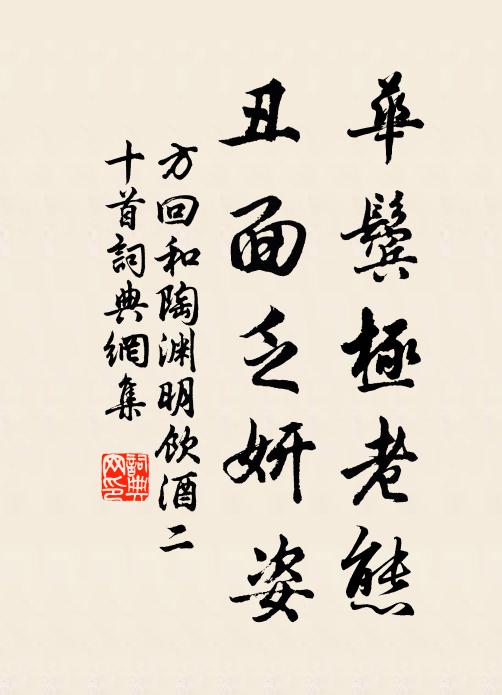 華鬢極老態
丑面乏妍姿
方回和陶渊明飲酒二
十首詞典網集
詞典
网印